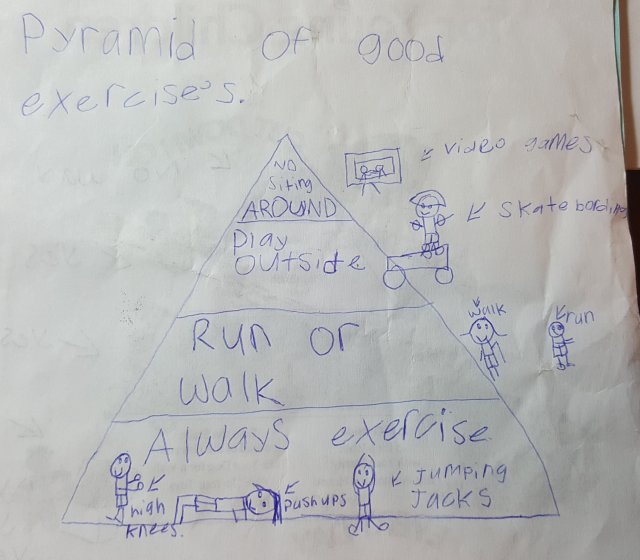 Pyramid of good
exercise's.
NO
Siting
AROUND
video games
Skateboarding
Play
outside
walk
run
Run or
walk
Always exercise
high
knees.
pushups
Jumping
Jacks